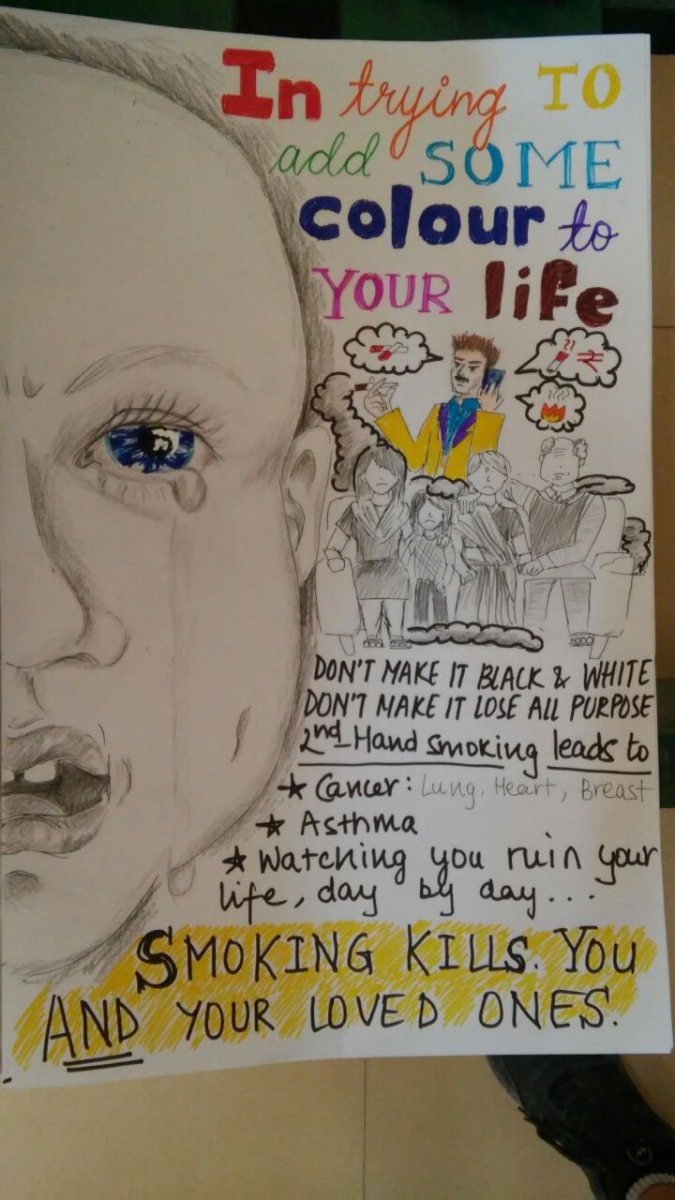 In trying TO
add SOME
colour to
YOUR life
DON'T MAKE IT BLACK & WHITE
DON'T MAKE IT LOSE ALL PURPOSE
2nd-Hand smoking leads to
★ Cancer: Lung, Heart, Breast
★ Asthma
★ Watching you ruin your
life, day by day...
SMOKING KILLS. YOU
AND YOUR LOVED ONES.